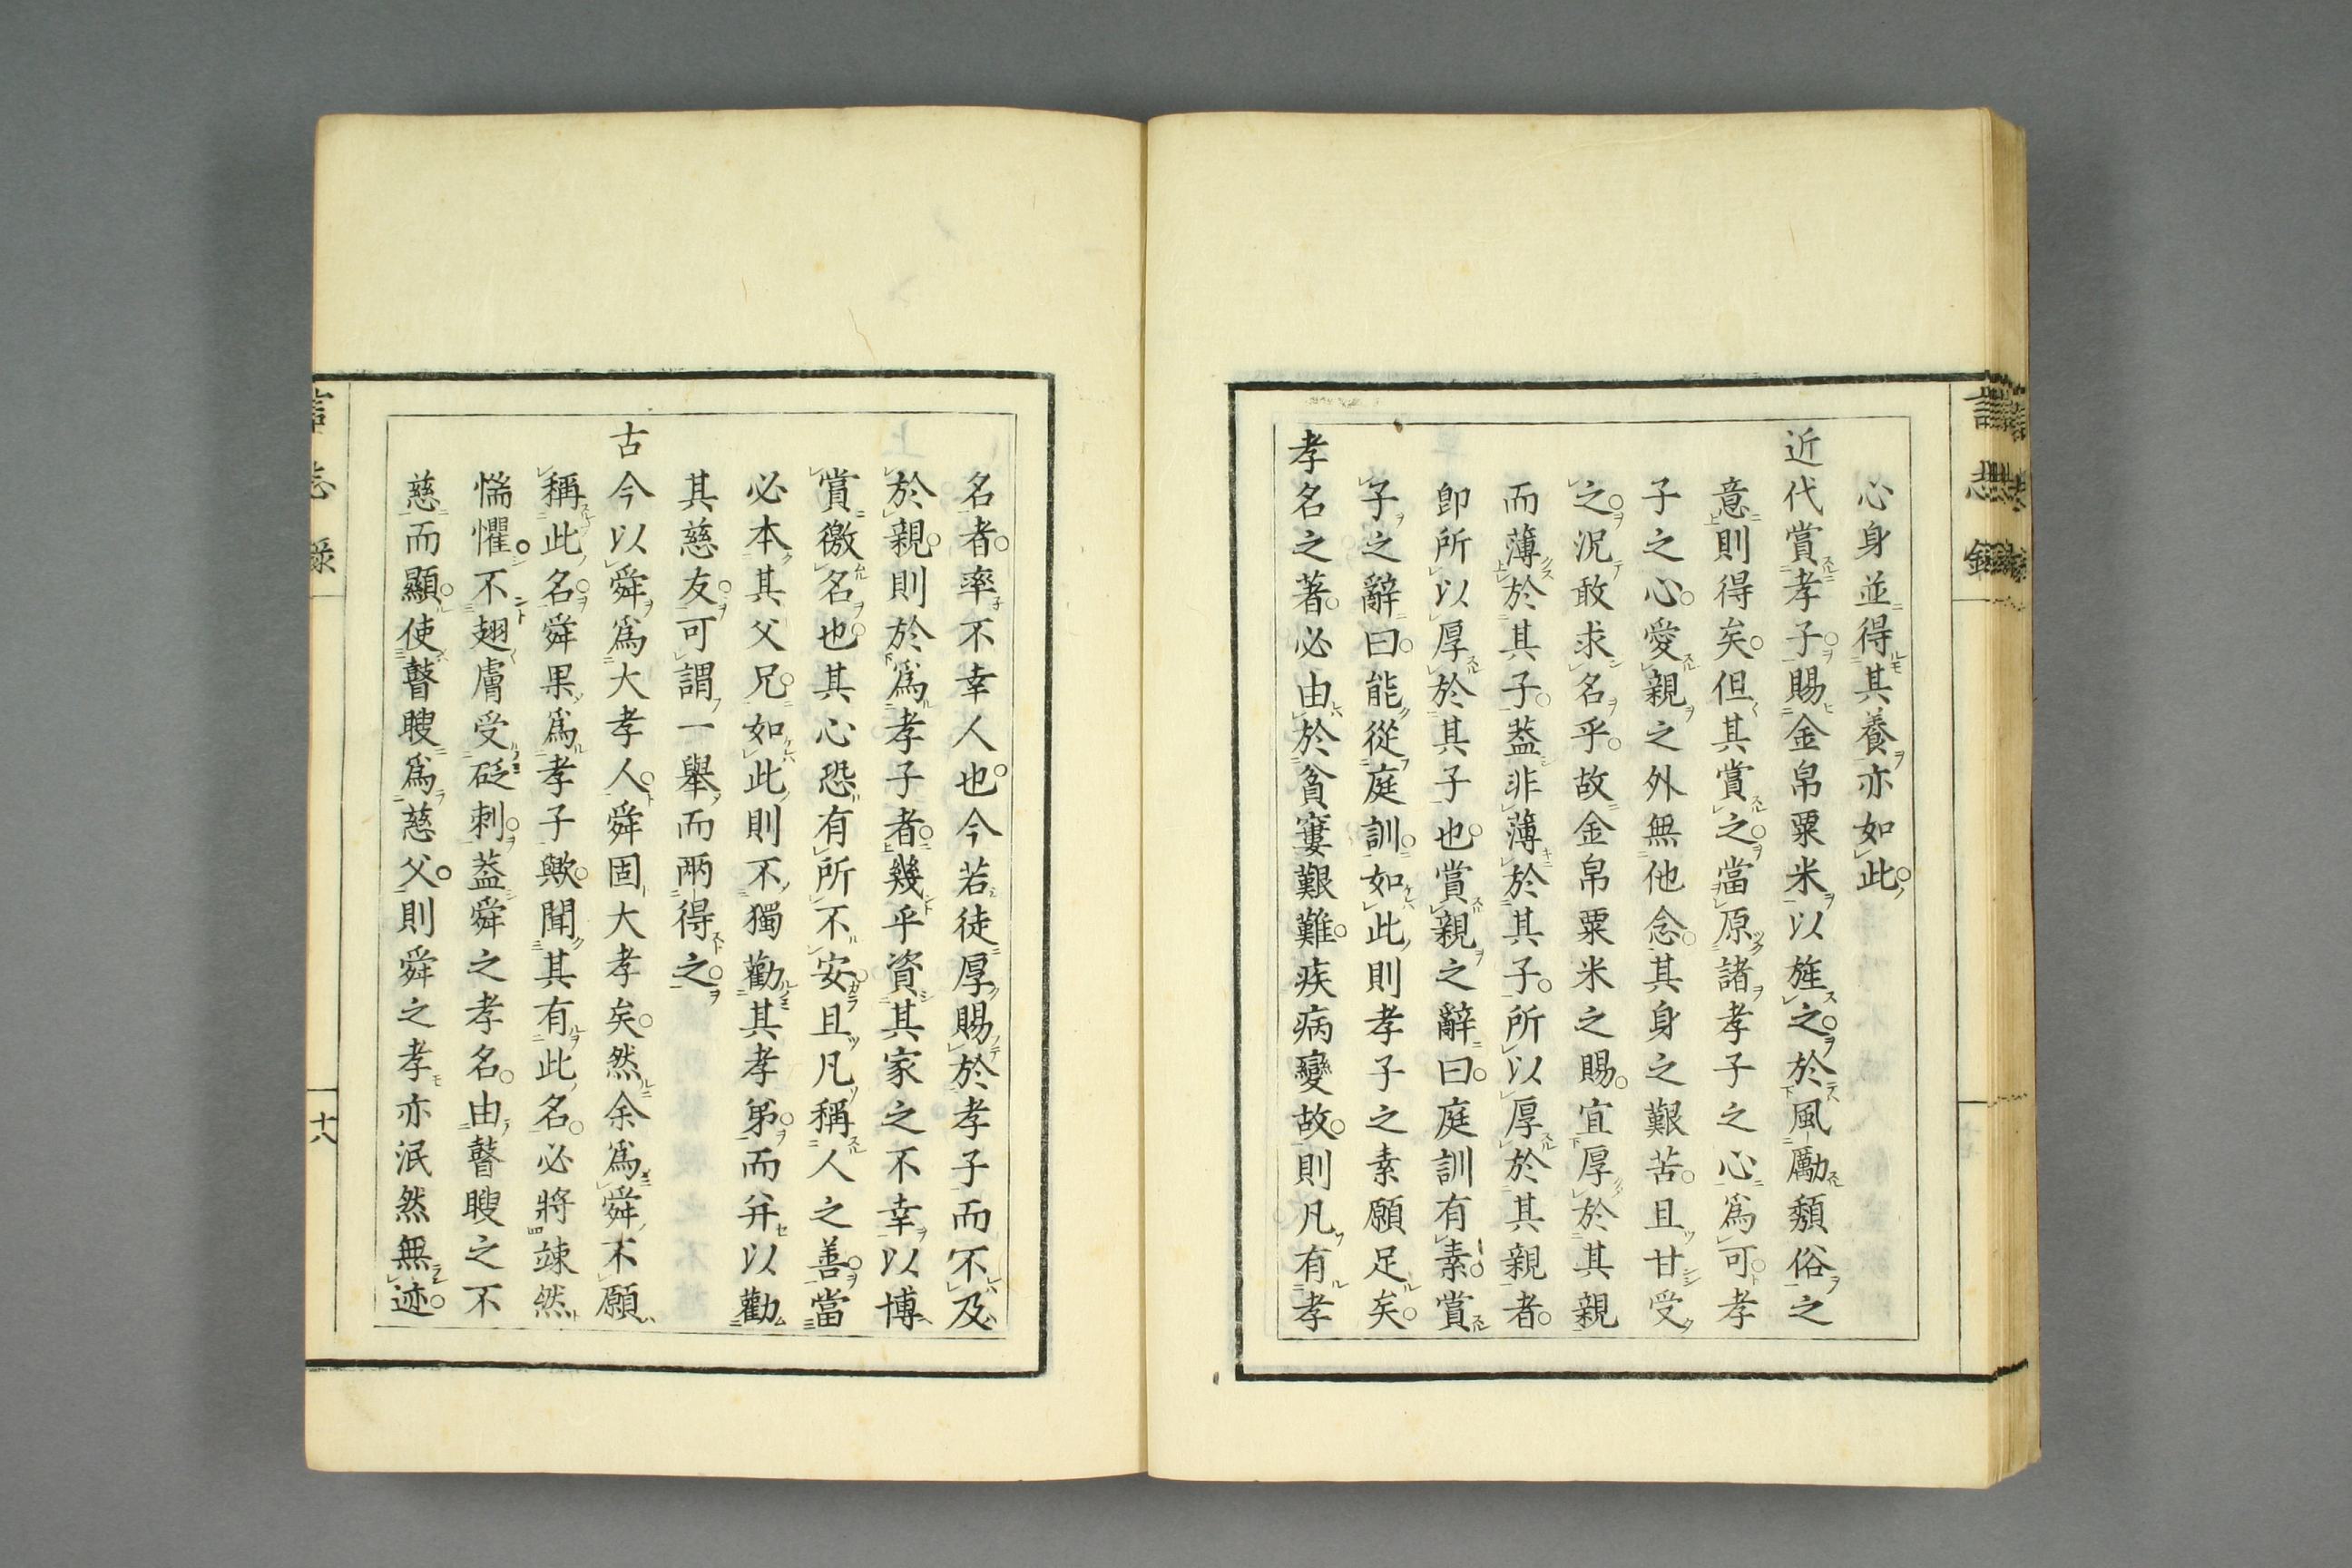 心身並得其養亦如此
近代賞孝子賜金帛粟米以旌之於風勵頽俗之
意則得矣但其賞之當原諸孝子之心爲可孝
子之心愛親之外無他念其身之艱苦且甘受
之況敢求名乎故金帛粟米之賜宜厚於其親
而薄於其子葢非薄於其子所以厚於其親者
卽所以厚於其子也賞親之辭曰庭訓有素賞
子之辭曰能從庭訓如此則孝子之素願足矣
孝名之著必由於貧窶艱難疾病變故則凡有孝
名者率不幸人也今若徒厚賜於孝子而不及
於親則於爲孝子者幾乎資其家之不幸以博
賞徼名也其心恐有所不安且凡稱人之善當
必本其父兄如此則不獨勸其孝弟而并以勸
其慈友可謂一擧而兩得之
古今以舜爲大孝人舜固大孝矣然余爲舜不願
稱此名舜果爲孝子歟聞其有此名必將竦然
惴懼不翅膚受砭刺葢舜之孝名由瞽瞍之不
慈而顯使瞽瞍爲慈父則舜之孝亦泯然無迹
言志錄
十八